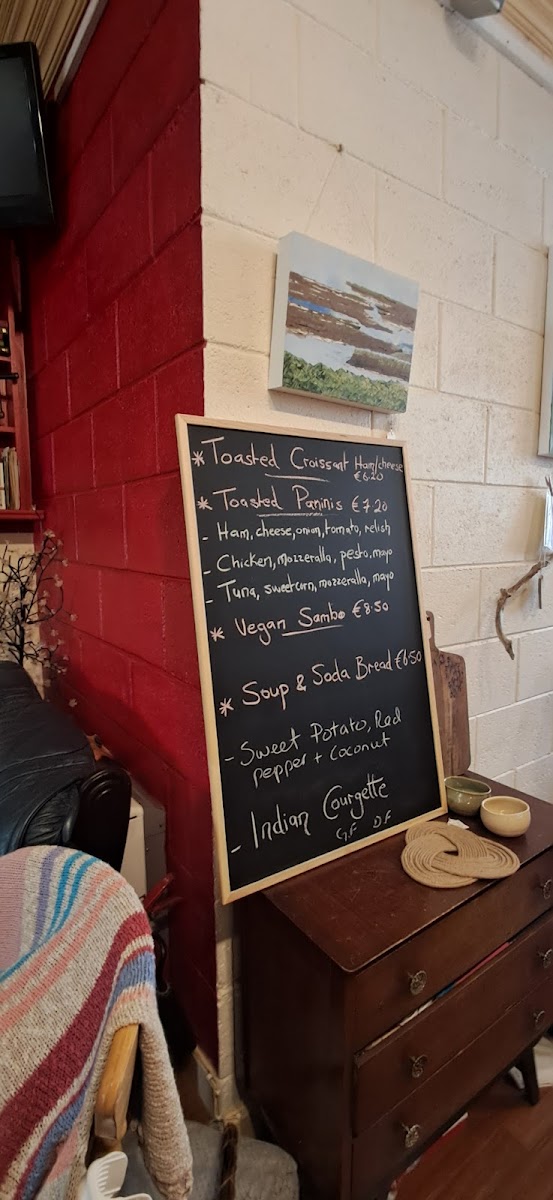 * Toasted Croissant Ham/cheese
€6.20
* Toasted Paninis €7.20
- Ham, cheese, onion, tomato, relish
- Chicken, mozzeralla, pesto, mayo
- Tuna, sweetcorn, mozzeralla, mayo
* Vegan Sambo €8.50
* Soup & Soda Bread €6.50
- Sweet Potato, Red
pepper + Coconut
- Indian Courgette
GF DF